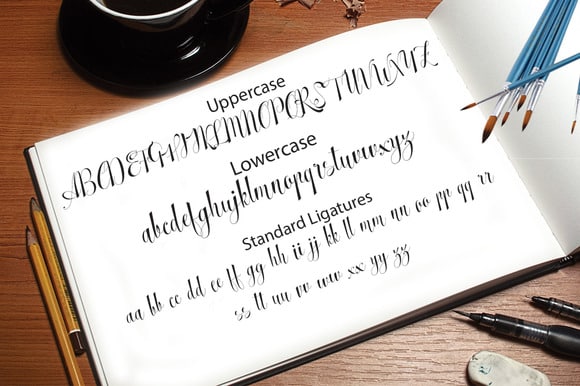 Uppercase
ABCDEFGHIJKLMNOPQRSTUVWXYZ
Lowercase
abcdefghijklmnopqrstuvwxyz
Standard Ligatures
aa bb cc dd ee ff gg hh ii jj kk ll mm nn oo pp qq rr
ss tt uu vv ww xx yy zz